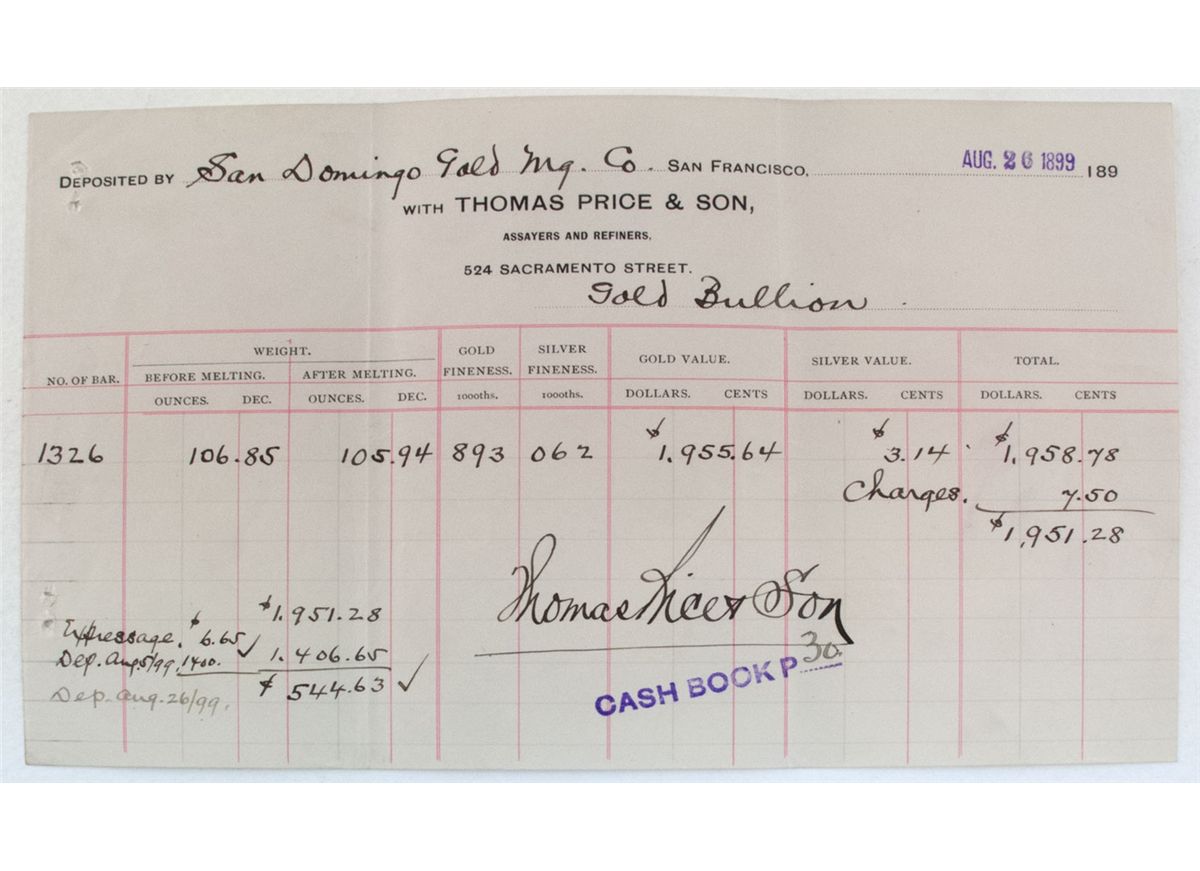 DEPOSITED BY San Domingo Gold Mg. Co. SAN FRANCISCO, AUG. 26 1899 189
WITH THOMAS PRICE & SON,
ASSAYERS AND REFINERS,
524 SACRAMENTO STREET.
Gold Bullion
NO. OF BAR. WEIGHT. GOLD FINENESS. SILVER FINENESS. GOLD VALUE. SILVER VALUE. TOTAL.
BEFORE MELTING. AFTER MELTING.
OUNCES. DEC. OUNCES. DEC. 1000ths. 1000ths. DOLLARS. CENTS DOLLARS. CENTS DOLLARS. CENTS
1326 106.85 105.94 893 062 $1,955.64 $3.14 $1,958.78
Charges. 7.50
$1,951.28
Thomas Price & Son
$1,951.28
Expressage. $6.65
Dep. Aug. 5/99, 1400. 1,406.65
$544.63
Dep. Aug. 26/99.
CASH BOOK P 30